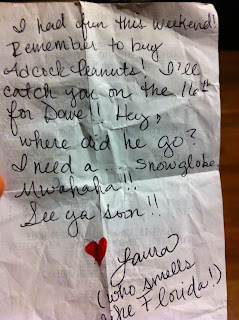 I had fun this weekend!
Remember to buy
Adcock Peanuts! I'll
catch you on the 16th
for Dave!! Hey,
where did he go?
I need a... snowglobe.
Mwahaha!!
See ya soon!!
Laura
(who smells
like Florida!)